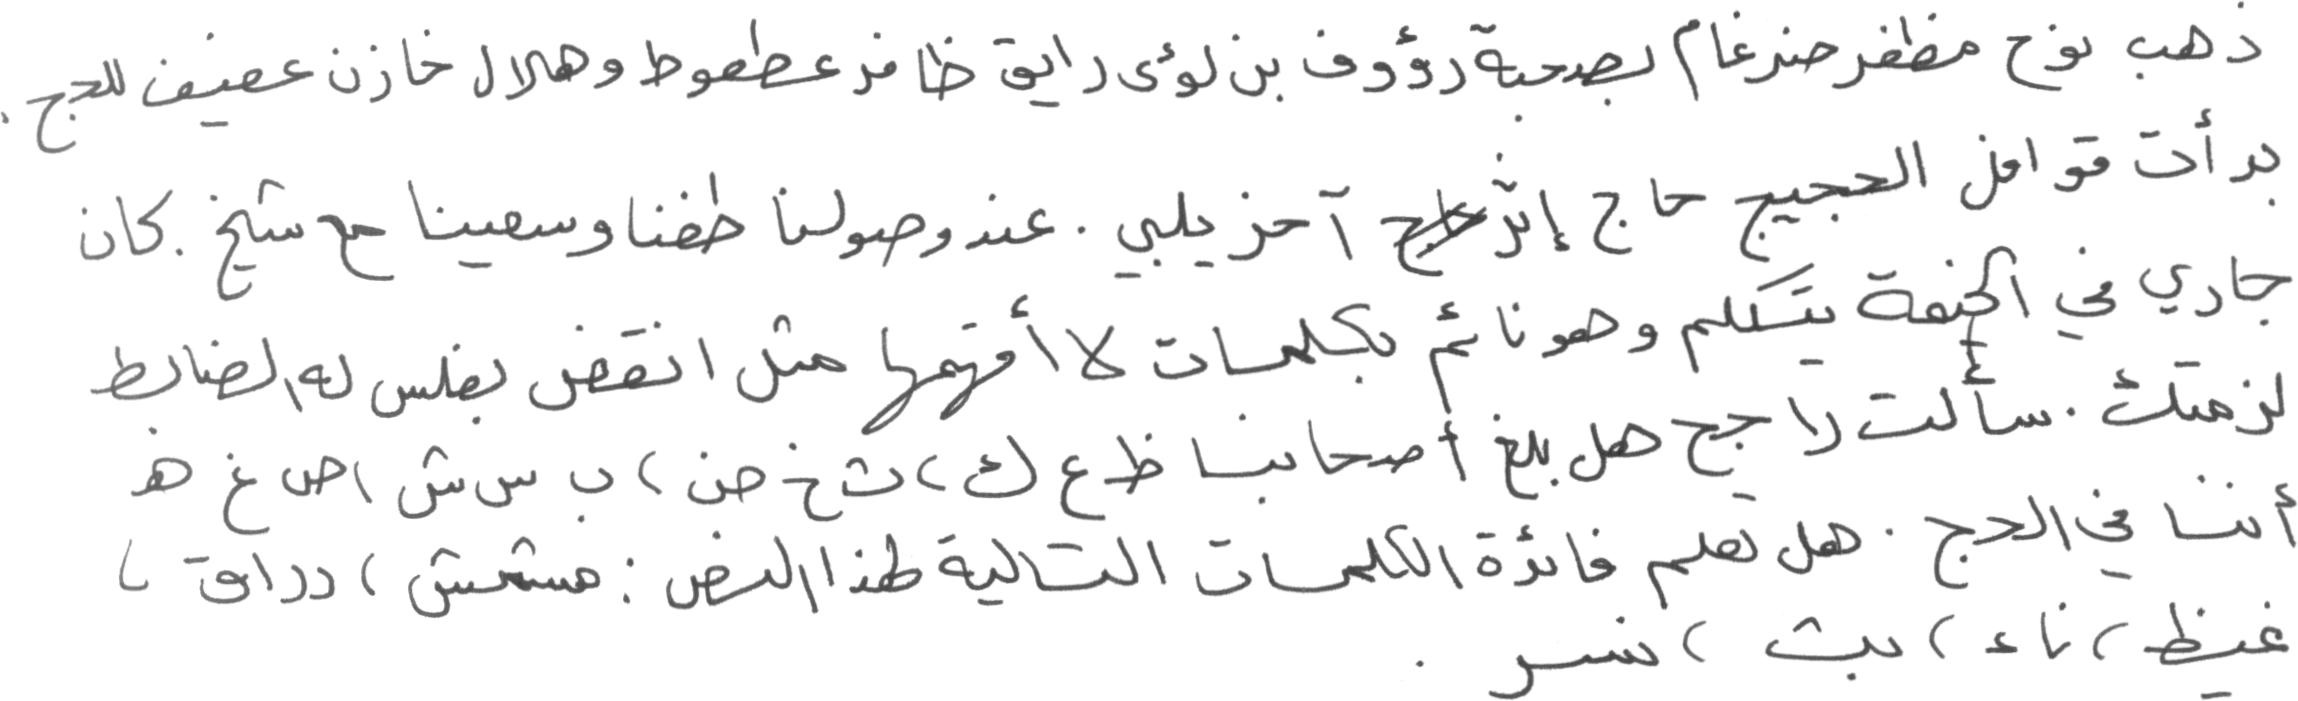 ذهب نوح مظفر ضرغام بصحبة رؤوف بن لؤى رايق ظافر عطعوط وهلال خازن عفيف للحج .
بدأت قوافل الحجيج حاج إثر آخر يلبي . عند وصولنا طفنا وسعينا مع شيخ . كان
جاري في الخيمة يتكلم وهو نائم بكلمات لا أفهمها مثل انقض بفلس له الضابط
لزمتك . سألت لاجج هل بلغ أصحابنا ظ ع ك ، ث خ ض ، ب س ش ، ص غ ه
أننا في الحج . هل تعلم فائدة الكلمات التالية لهذا النص : مشمش ، دراق ،
غيظ ، ناء ، ببث ، نسر .